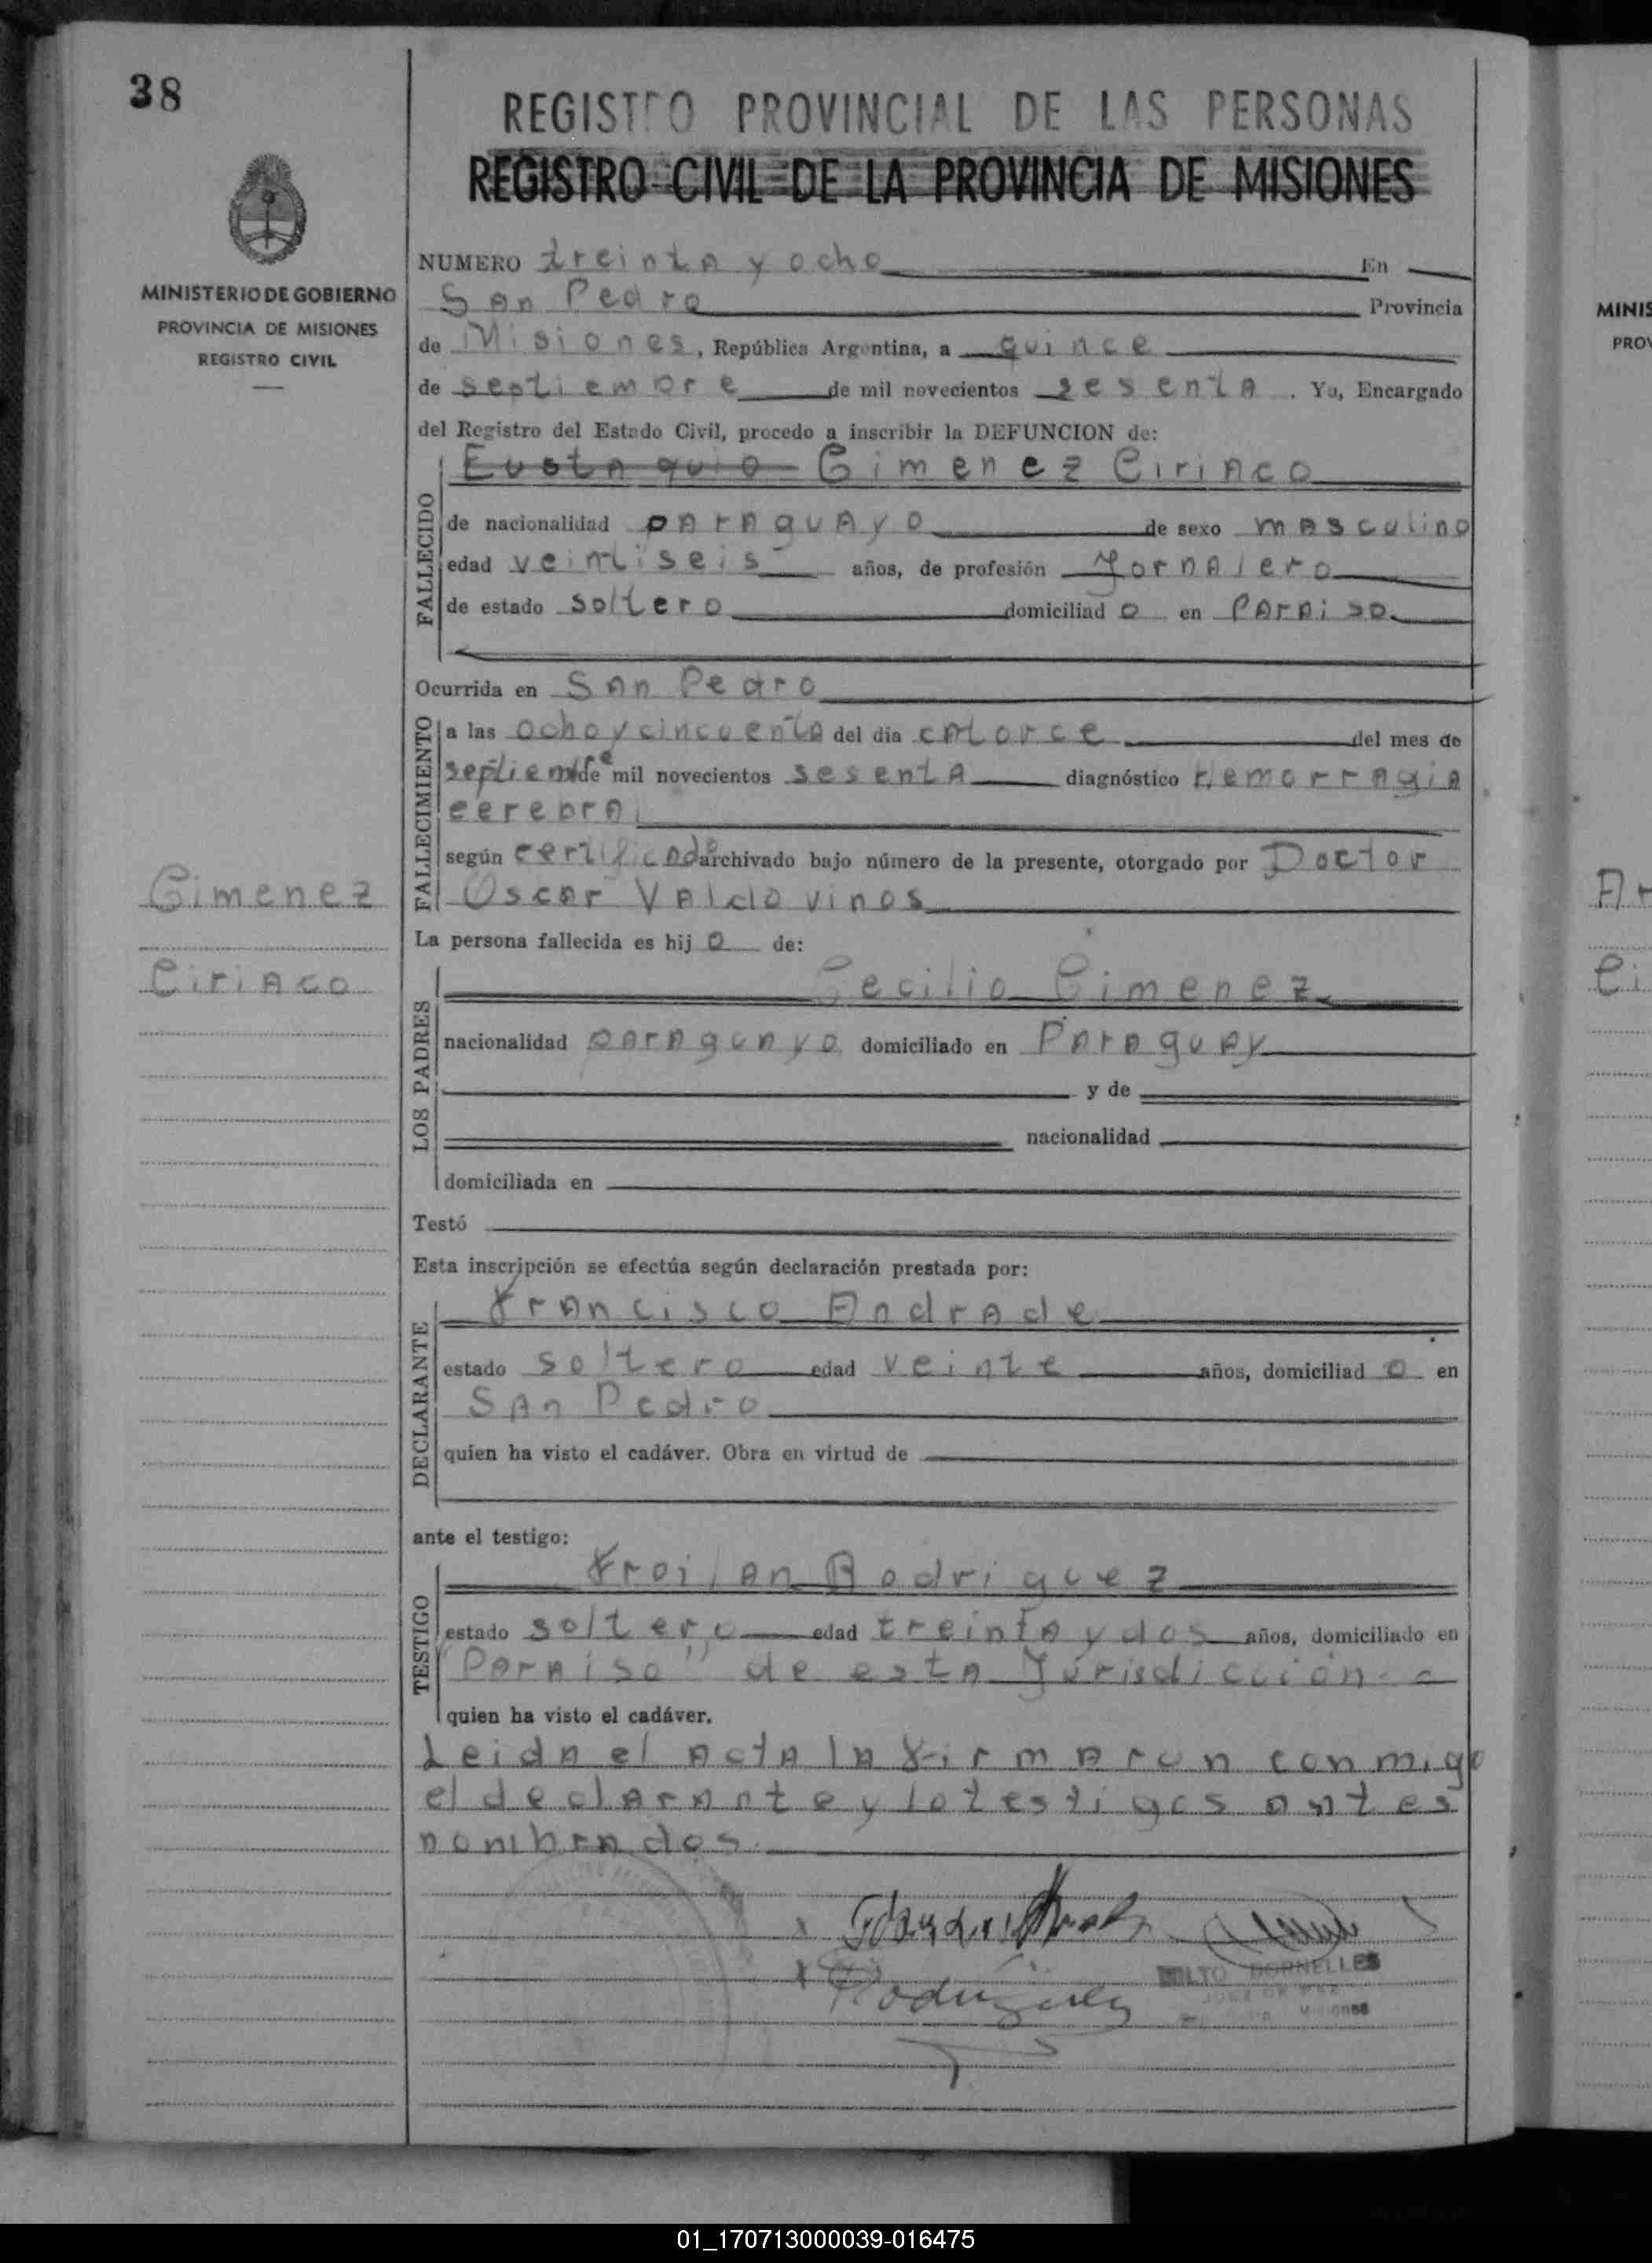 38
REGISTRO PROVINCIAL DE LAS PERSONAS
REGISTRO CIVIL DE LA PROVINCIA DE MISIONES
MINISTERIO DE GOBIERNO
PROVINCIA DE MISIONES
REGISTRO CIVIL
NUMERO treinta y ocho En
San Pedro Provincia
de Misiones, República Argentina, a quince
de septiembre de mil novecientos sesenta. Yo, Encargado
del Registro del Estado Civil, procedo a inscribir la DEFUNCION de:
FALLECIDO
Eustaquio Gimenez Ciriaco
de nacionalidad paraguayo de sexo masculino
edad veintiseis años, de profesión Jornalero
de estado soltero domiciliado en Paraiso
Ocurrida en San Pedro
FALLECIMIENTO
a las ocho y cincuenta del dia catorce del mes de
septiembre de mil novecientos sesenta diagnóstico Hemorragia
cerebral
según certificado archivado bajo número de la presente, otorgado por Doctor
Oscar Valdovinos
Gimenez
Ciriaco
La persona fallecida es hijo de:
LOS PADRES
Cecilio Gimenez
nacionalidad paraguayo domiciliado en Paraguay
y de
nacionalidad
domiciliada en
Testó
Esta inscripción se efectúa según declaración prestada por:
DECLARANTE
Francisco Andrade
estado soltero edad veinte años, domiciliado en
San Pedro
quien ha visto el cadáver. Obra en virtud de
ante el testigo:
TESTIGO
Froilan Rodriguez
estado soltero edad treinta y dos años, domiciliado en
"Paraiso" de esta Jurisdicción
quien ha visto el cadáver.
Leida el acta la firmaron conmigo
el declarante y lo testigos antes
nombrados.
Rodriguez
DORNELLES
JUEZ DE PAZ
Misiones
MINIS
PROV
01_170713000039-016475